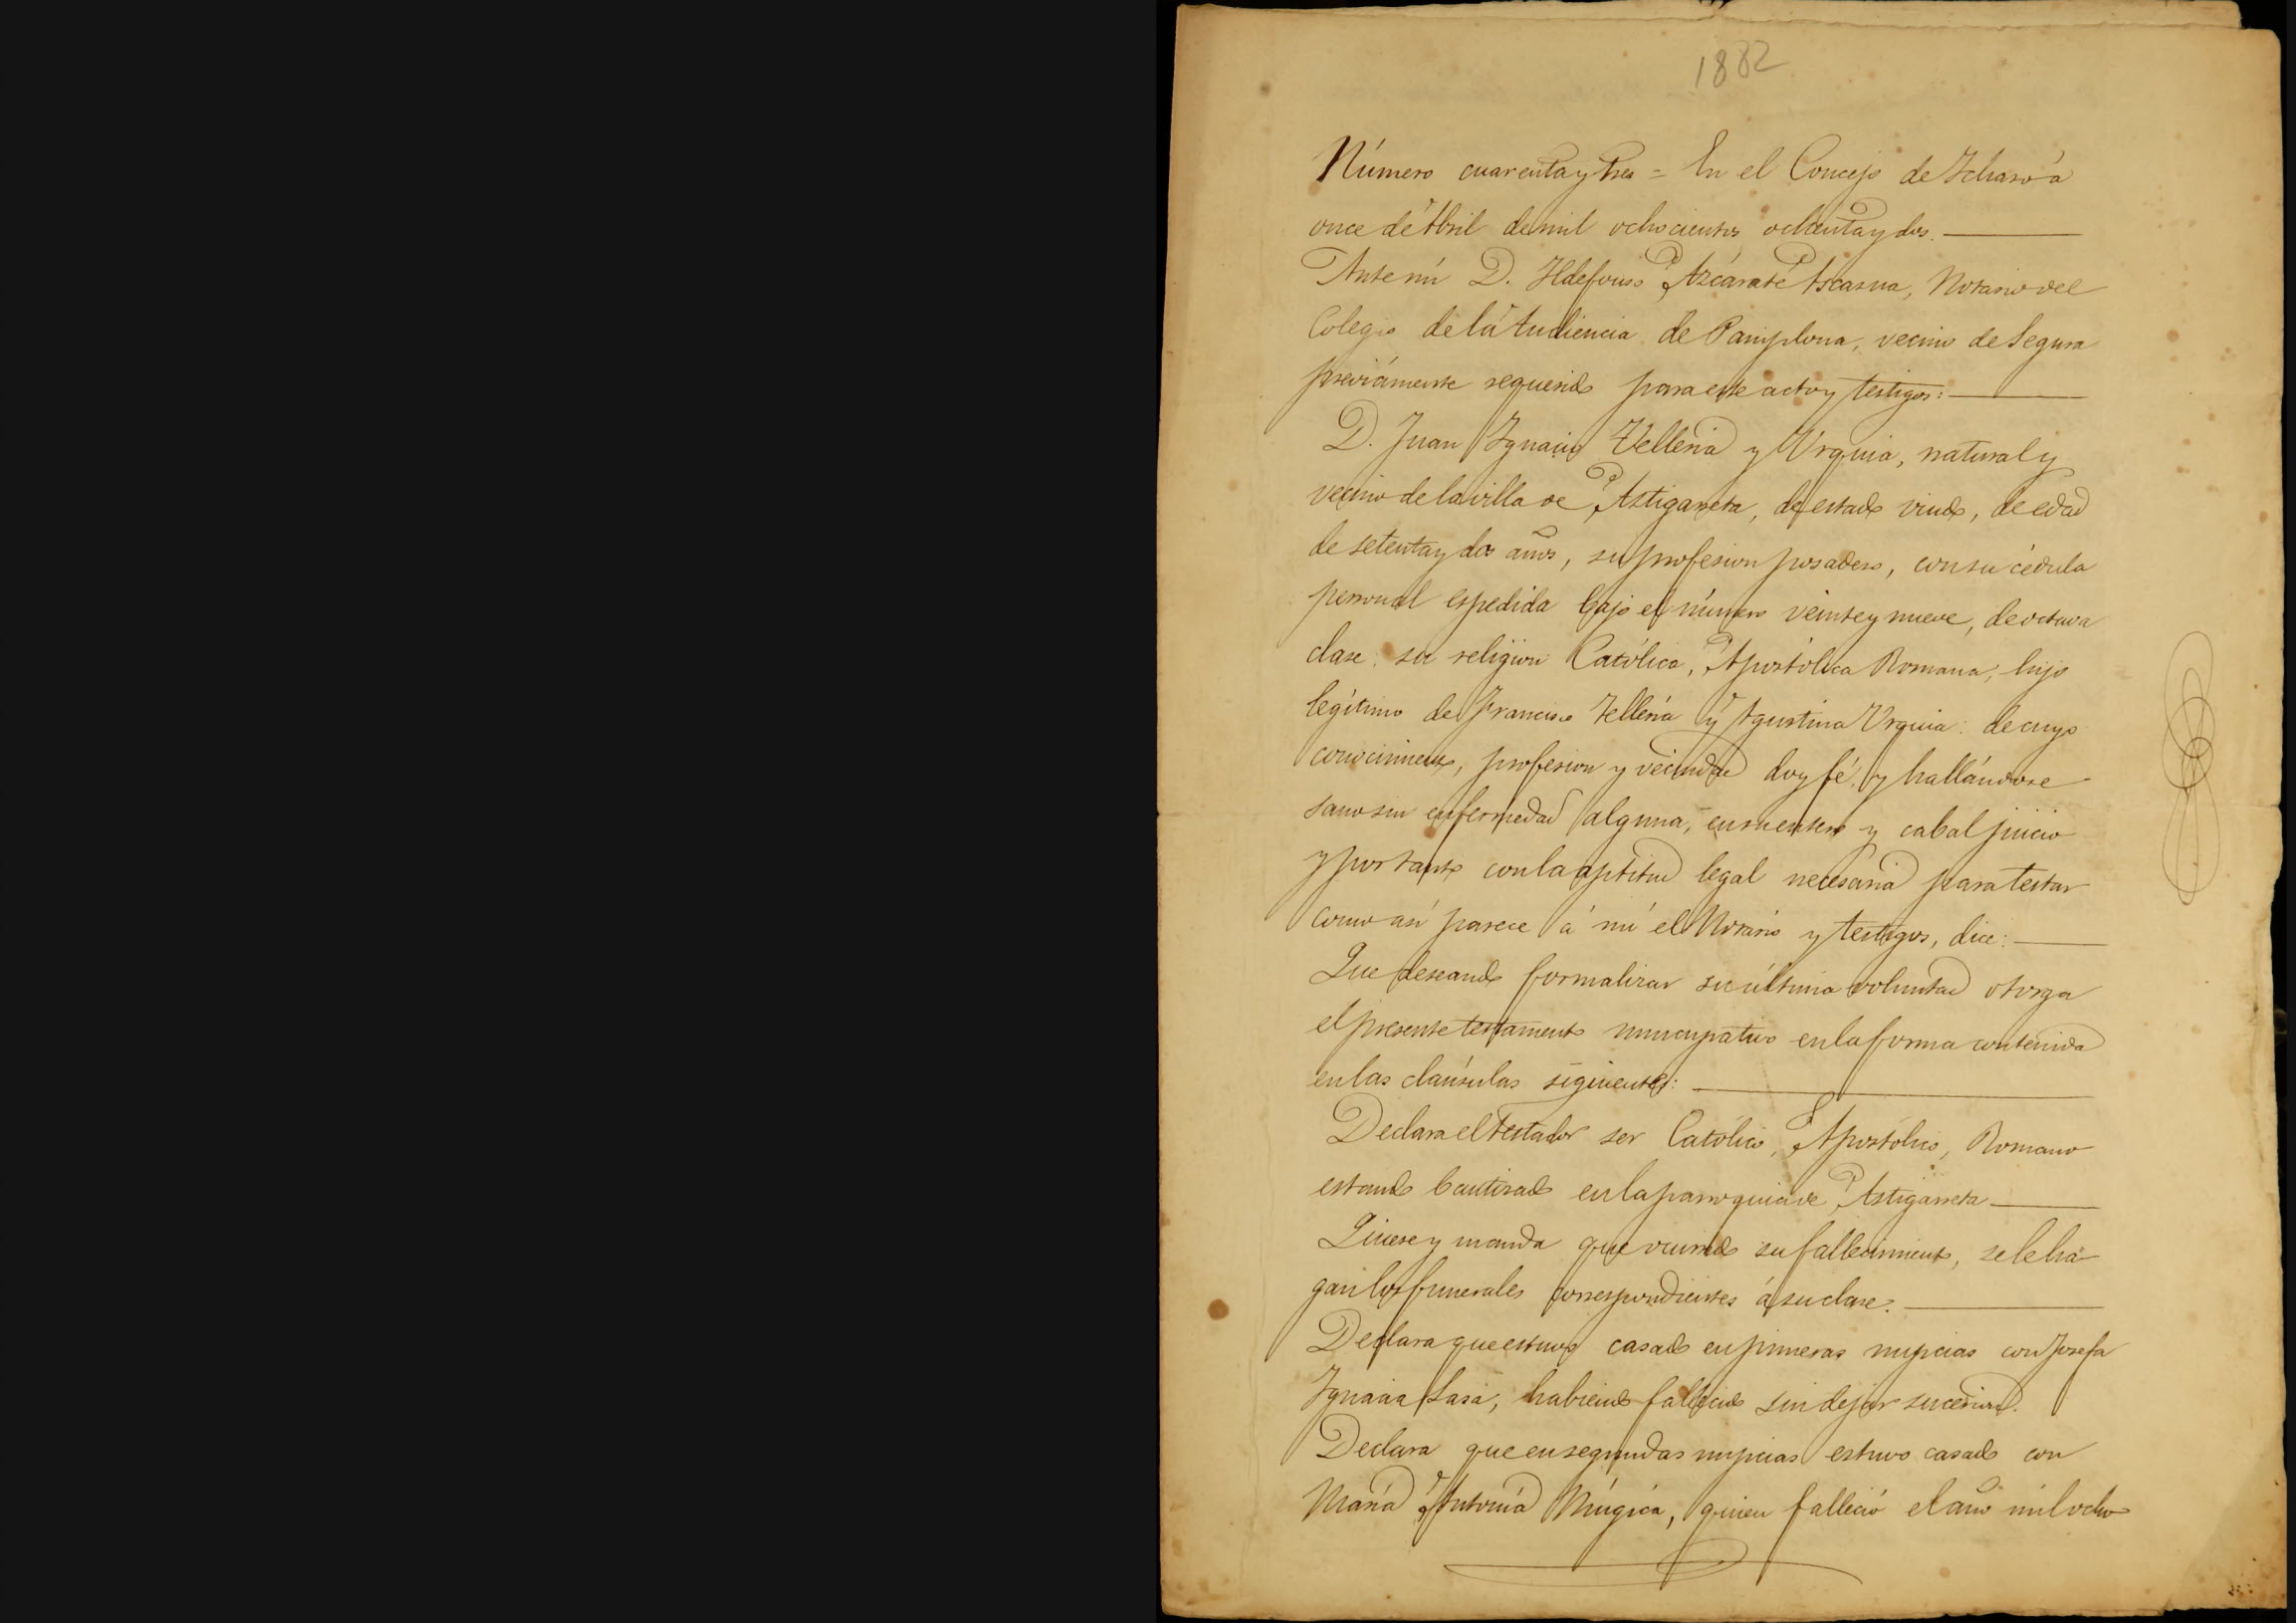 1882
Número cuarenta y tres = En el Concejo de Ichaso á
once de Abril de mil ochocientos ochenta y dos.
Ante mí D. Ildefonso Azcárate Ascasua, Notario del
Colegio de la Audiencia de Pamplona, vecino de Segura
previamente requerido para este acto y testigos:
D. Juan Ignacio Telleria y Urquia, natural y
vecino de la villa de Astigarreta, de estado viudo, de edad
de setenta y dos años, su profesion posadero, con su cédula
personal espedida bajo el número veinte y nueve, de octava
clase: su religion Católica, Apostólica Romana; hijo
legítimo de Francisco Tellería y Agustina Urquia: de cuyo
conocimiento, profesion y vecindad doy fé, y hallándose
sano sin enfermedad alguna, en su entero y cabal juicio
y por tanto con la aptitud legal necesaria para testar
como así parece á mí el Notario y testigos, dice:
Que deseando formalizar su última voluntad otorga
el presente testamento nuncupativo en la forma contenida
en las claúsulas siguientes:
Declara el testador ser Católico, Apostólico, Romano
estando bautizado en la parroquia de Astigarreta
Quiere y manda que ocurrido su fallecimiento, se le há-
gan los funerales correspondientes á su clase.
Declara que estuvo casado en primeras nupcias con Josefa
Ignacia Lasa, habiendo fallecido sin dejar sucesion.
Declara que en segundas nupcias estuvo casado con
María Antonia Múgica, quien falleció el año mil ocho